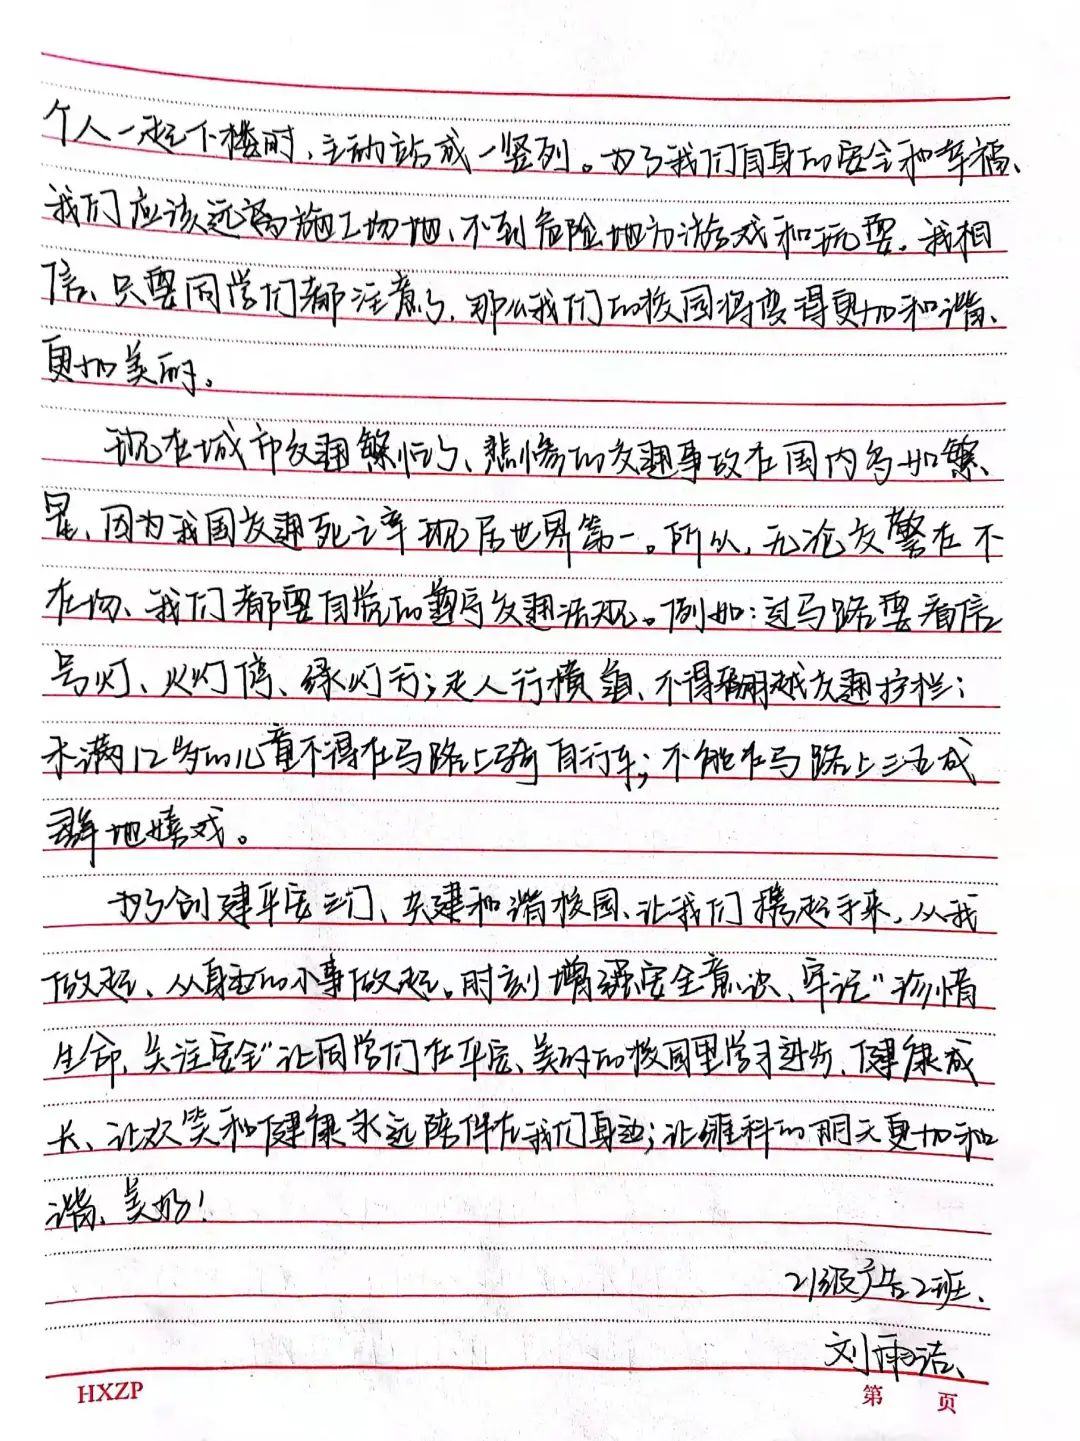 个人一起下楼时、主动站成一竖列。为了我们自身的安全和幸福、
我们应该远离施工场地、不到危险地方游戏和玩耍。我相
信、只要同学们都注意了、那么我们的校园将变得更加和谐、
更加美丽。
现在城市交通繁忙了、悲惨的交通事故在国内多如繁
星、因为我国交通死亡率现居世界第一。所以、无论交警在不
在场、我们都要自觉的遵守交通法规。例如：过马路要看信
号灯、火灯停、绿灯行；走人行横道、不得翻越交通护栏；
未满12岁的儿童不得在马路上骑自行车；不能在马路上三五成
群地嬉戏。
为了创建平安三门、共建和谐校园、让我们携起手来、从我
做起、从身边的小事做起。时刻增强安全意识、牢记“珍惜
生命、关注安全”让同学们在平安、美丽的校园里学习进步、健康成
长、让欢笑和健康永远陪伴在我们身边；让维科的明天更加和
谐、美好！
21级广告2班、
刘雨洁、
HXZP
第 页